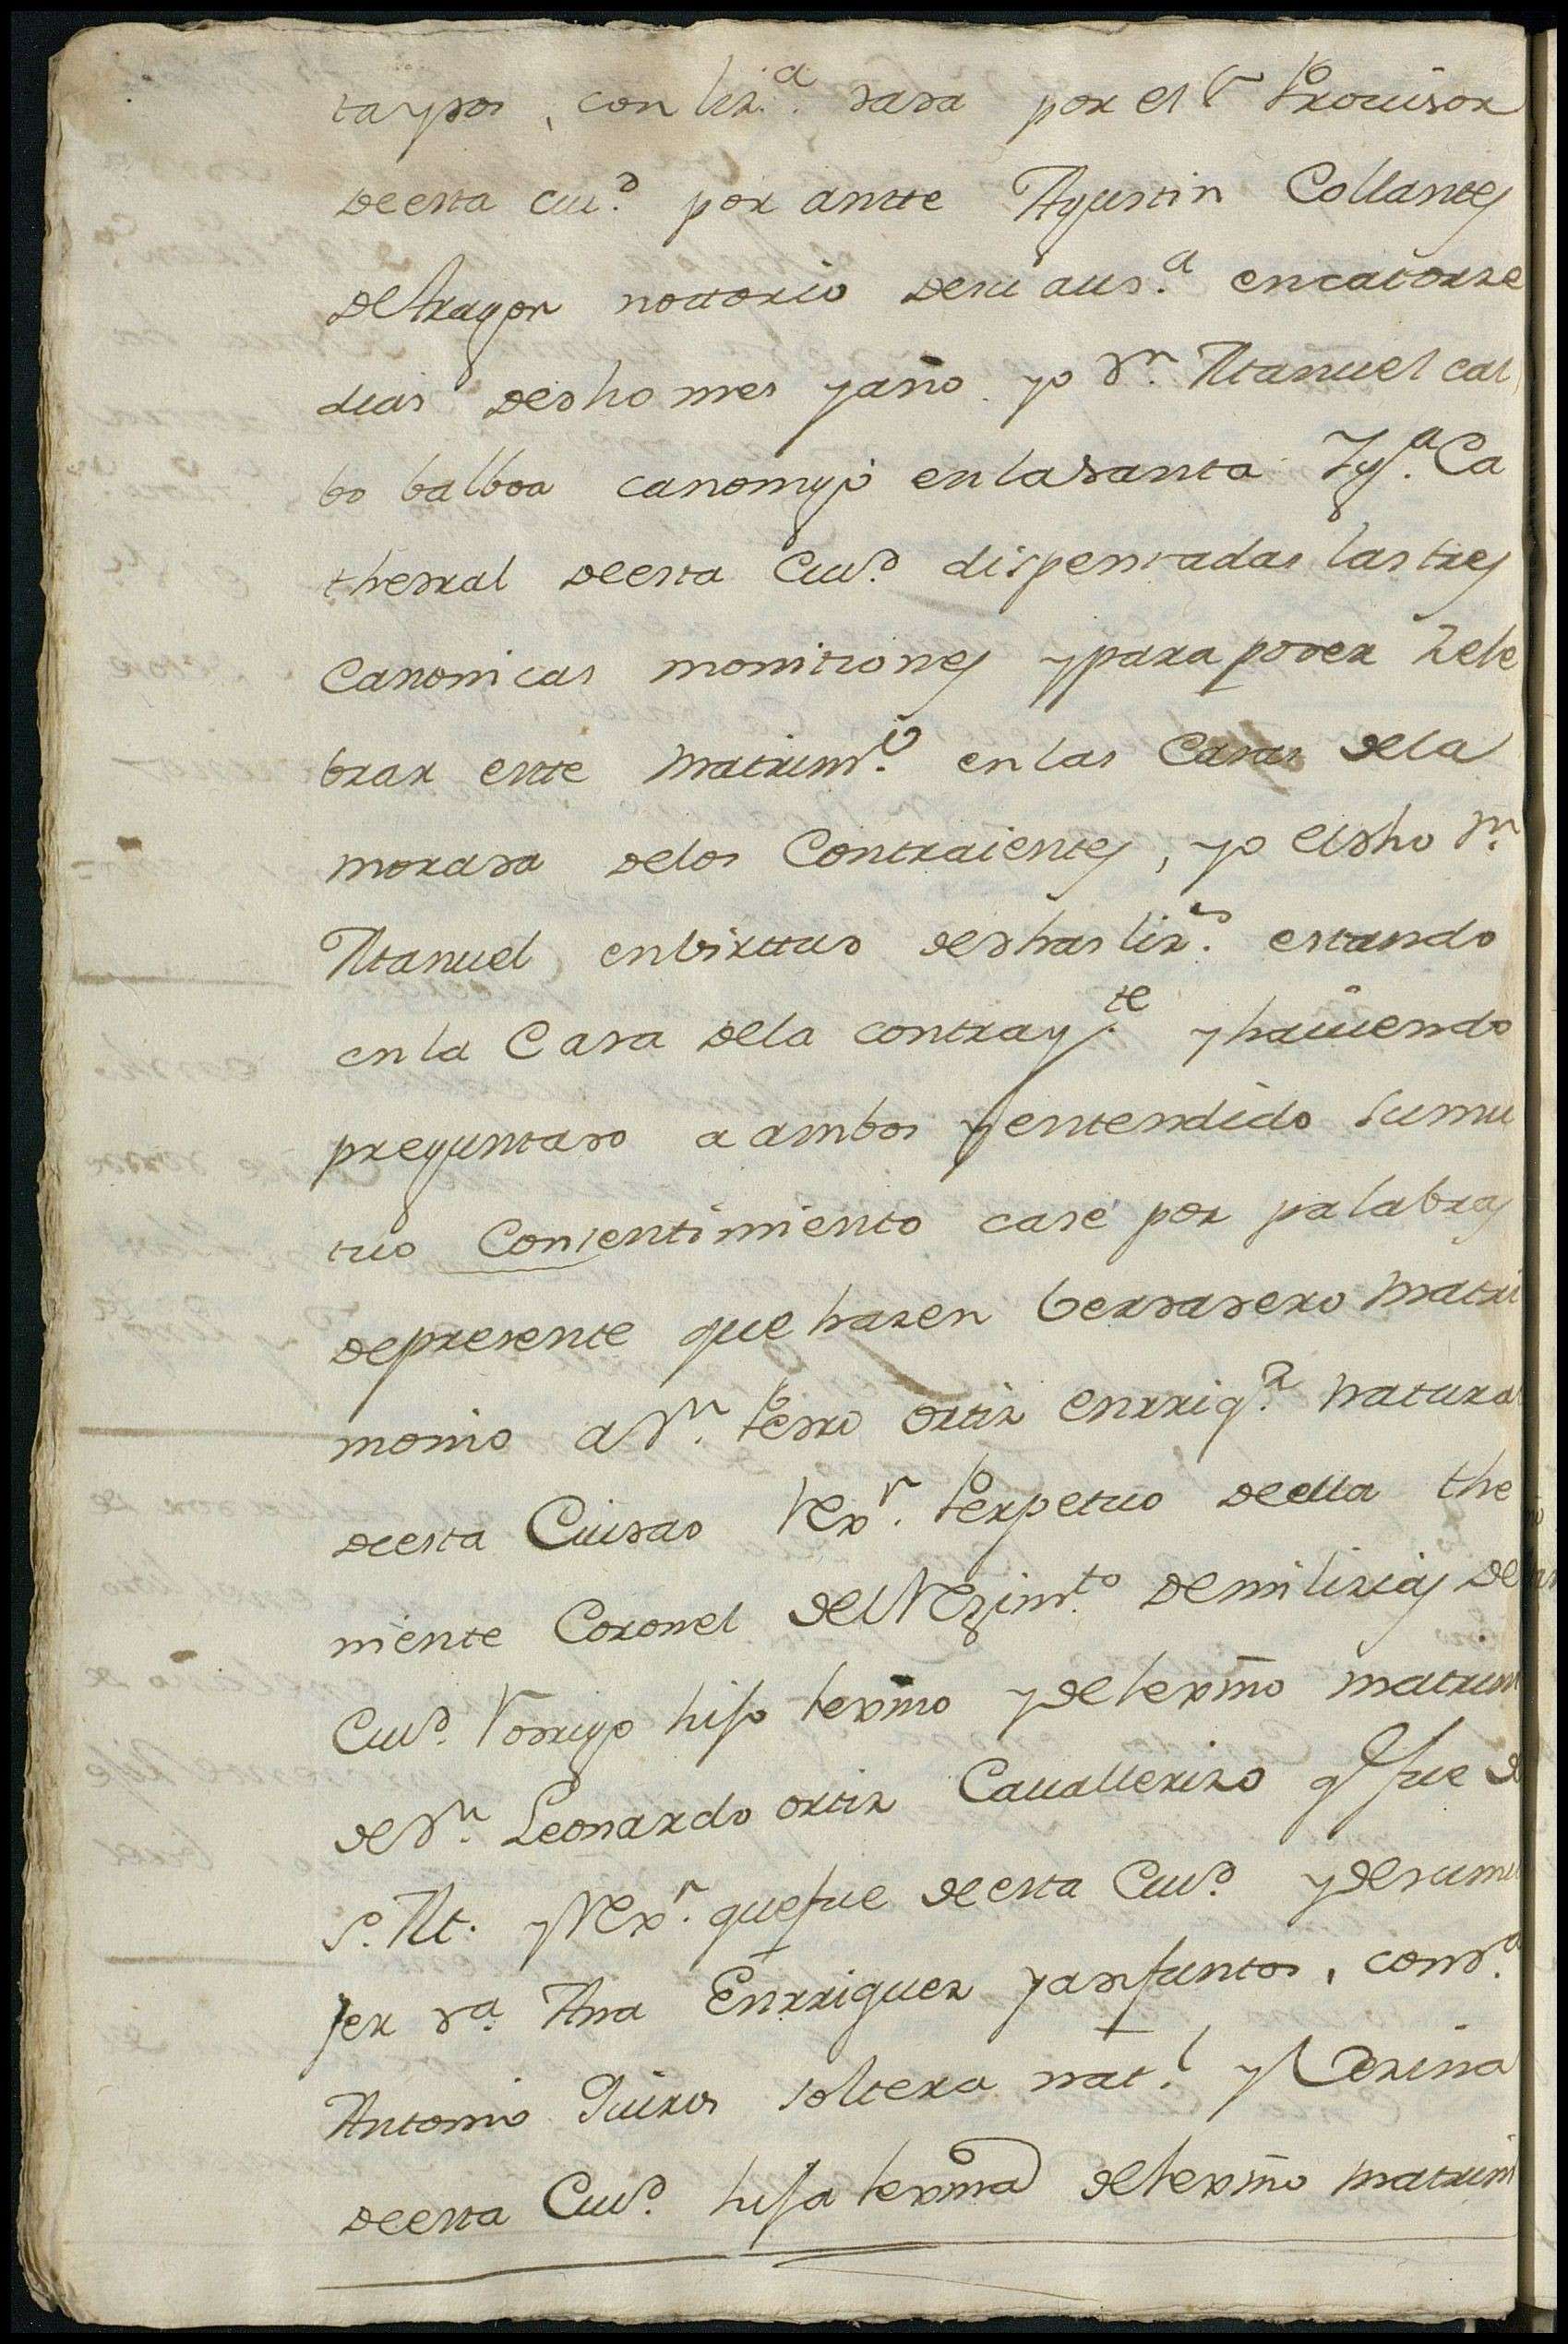 taydos, con liz.a dada por el Sr Provisor
de esta ciu.d por antte Agustin Collantes
de Aragon nottorio de su aud.a en catorze
dias de dho mes y año yo Dn. Manuel cal
bo balboa canonigo en la santa Ygl.a Ca
thedral de esta Ciu.d dispensadas las tres
canonicas monitiones y para poder Zele
brar este matrim.o en las Casas de la
morada de los Contraientes, yo el dho Dn.
Manuel en birttud de dhas liz.s estando
en la Casa de la contray.te y hauiendo
preguntado a ambos y entendido su mu
tuo Consentimiento case por palabras
de presente que hazen berdadero matri
monio a Dn. Pedro ortiz enrriq.z natural
de esta Ciudad Rexr. Perpetuo de ella the
niente Coronel del Rezim.to de milizias de
Ciu.d Rodrigo hijo lexmo y de lexmo matrim
de Dn. Leonardo ortiz Cauallerizo q fue de
S. M. y Rexr. que fue de esta Ciu.d y de su mu
jer da. Ana Enrriquez ya difuntos, con d.a
Antonio Quiros soltera nat.l y Vezina
de esta Ciu.d hija lexma de lexmo matrim